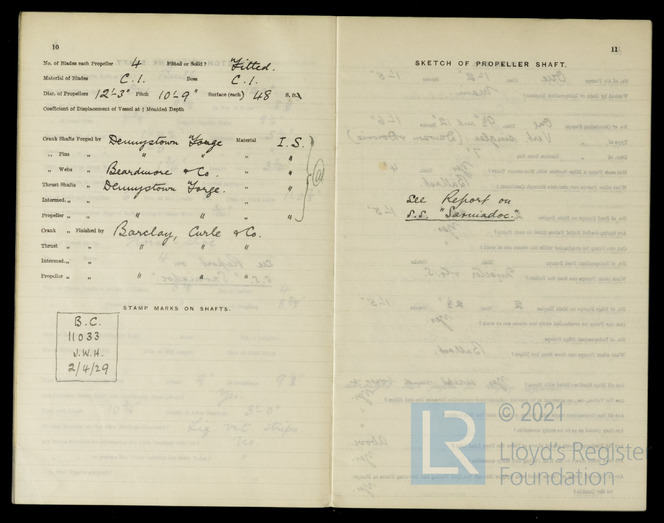 10
No. of Blades each Propeller 4 Fitted or Solid? Fitted.
Material of Blades C.I. Boss C.I.
Diar. of Propellers 12'-3" Pitch 10'-9" Surface (each) 48 S. ft.
Coefficient of Displacement of Vessel at ½ Moulded Depth
Crank Shafts Forged by Dennystown Forge Material I.S.
„ Pins „ " " „ "
„ Webs „ Beardmore & Co. „ "
Thrust Shafts „ Dennystown Forge. „ "
Intermed. „ „ „
Propeller „ „ " " „ "
Crank „ Finished by Barclay, Curle & Co.
Thrust „ „ " " "
Intermed. „ „
Propeller „ „ " " "
STAMP MARKS ON SHAFTS.
B.C.
11033
J.W.H.
2/4/29
11
SKETCH OF PROPELLER SHAFT.
See Report on
S.S. "Sarniadoc."
LR
© 2021
Lloyd's Register
Foundation